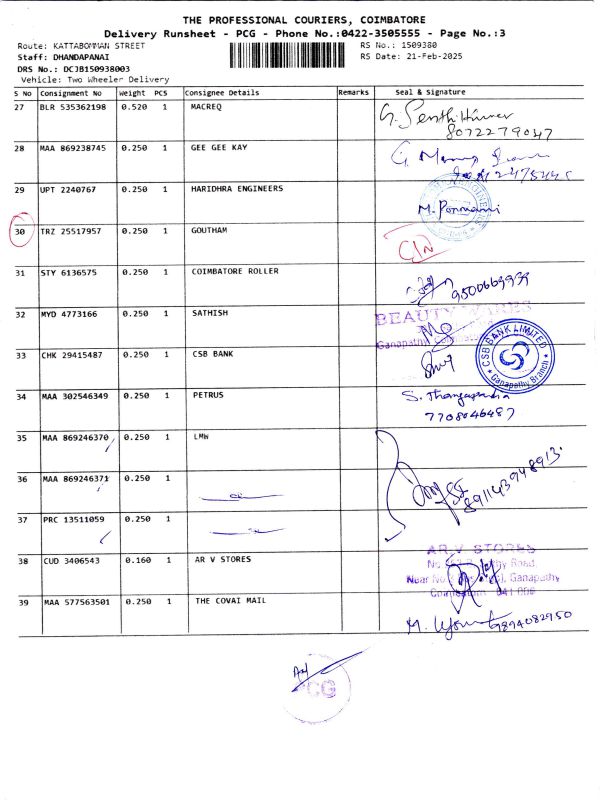 THE PROFESSIONAL COURIERS, COIMBATORE
Delivery Runsheet - PCG - Phone No.:0422-3505555 - Page No.:3
Route: KATTABOMMAN STREET RS No.: 1509380
Staff: DHANDAPANAI RS Date: 21-Feb-2025
DRS No.: DCJB150938003
Vehicle: Two Wheeler Delivery
S No Consignment No Weight PCS Consignee Details Remarks Seal & Signature
27 BLR 535362198 0.520 1 MACREQ
8072279047
28 MAA 869238745 0.250 1 GEE GEE KAY
29 UPT 2240767 0.250 1 HARIDHRA ENGINEERS
30 TRZ 25517957 0.250 1 GOUTHAM
31 STY 6136575 0.250 1 COIMBATORE ROLLER
9500669939
32 MYD 4773166 0.250 1 SATHISH BEAUTY
Ganapathy
33 CHK 29415487 0.250 1 CSB BANK CSB BANK LIMITED
Ganapathy Branch
34 MAA 302546349 0.250 1 PETRUS
7708046487
35 MAA 869246370 0.250 1 LMW
36 MAA 869246371 0.250 1
37 PRC 13511059 0.250 1
38 CUD 3406543 0.160 1 AR V STORES AR V STORES
Road,
Ganapathy
39 MAA 577563501 0.250 1 THE COVAI MAIL
9894082950
PCG